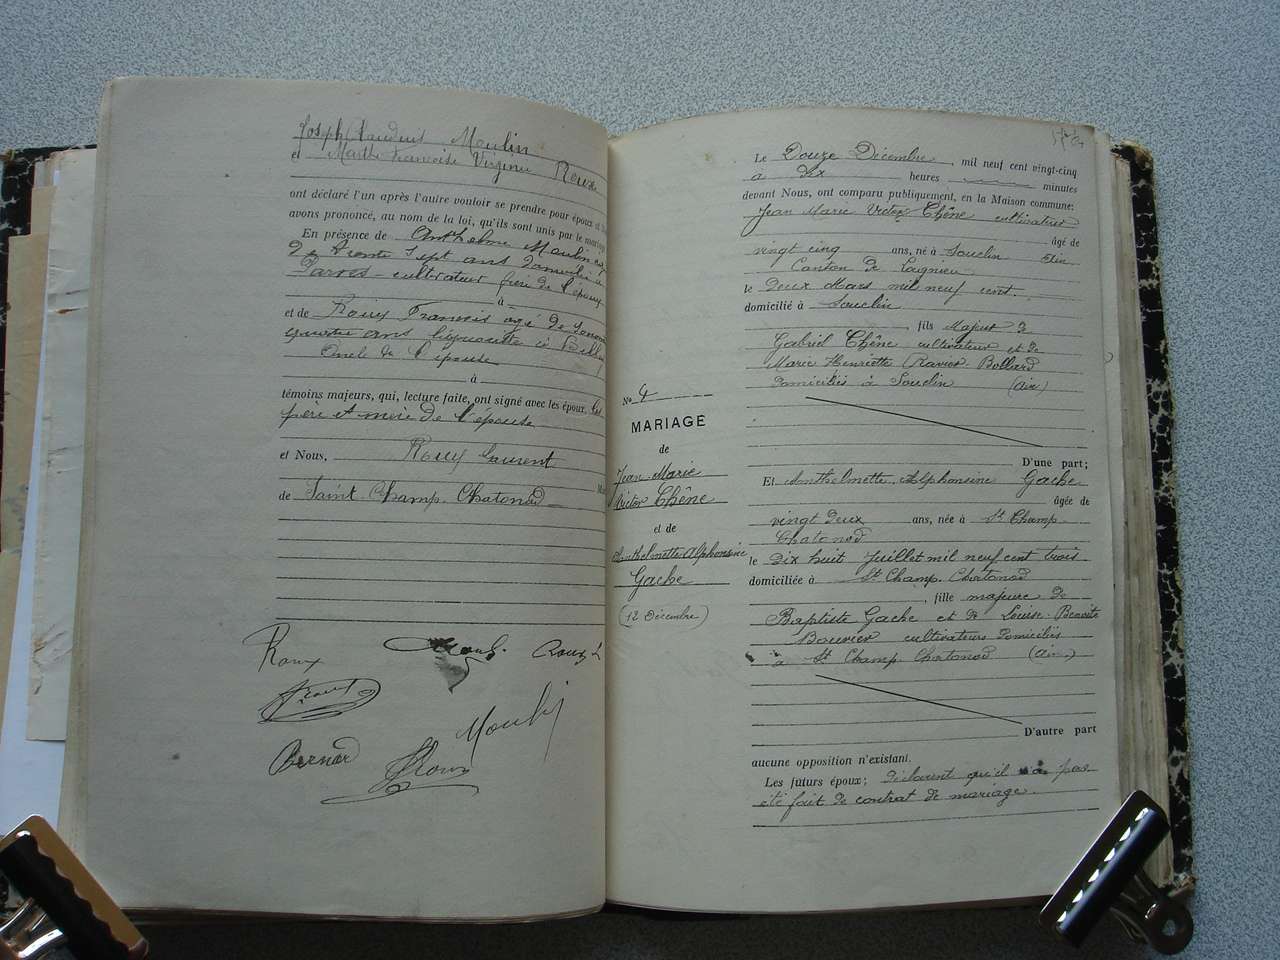 Joseph Claudius Moulin
et Marthe Françoise Virginie Roux
ont déclaré l'un après l'autre vouloir se prendre pour époux et
avons prononcé, au nom de la loi, qu'ils sont unis par le mariage
En présence de Anthelme Moulin
de trente sept ans domicilié à
Parves cultivateur frère de l'époux
à
et de Roux Francois agé de
quatre ans à
Oncle de l'épouse
à
témoins majeurs, qui, lecture faite, ont signé avec les époux, les
père et mère de l'épouse
et Nous, Roux Laurent
de Saint-Champ-Chatonod
Roux
Roux L
Bernard
Moulin
Roux
Le Douze Décembre, mil neuf cent vingt-cinq
à dix heures minutes
devant Nous, ont comparu publiquement, en la Maison commune:
Jean Marie Victor Chêne cultivateur
âgé de
vingt cinq ans, né à Souclin
Canton de Lagnieu
le deux Mars mil neuf cent.
domicilié à Souclin
, fils Majeur de
Gabriel Chêne cultivateur et de
Marie Henriette Ravier-Bollard
domiciliés à Souclin (Ain)
D'une part;
No 4
MARIAGE
de
Jean Marie
Victor Chêne
et de
Anthelmette Alphonsine
Gache
(12 Décembre)
Et Anthelmette Alphonsine Gache
âgée de
vingt deux ans, née à St Champ
Chatonod
le dix huit Juillet mil neuf cent trois
domiciliée à St Champ-Chatonod
, fille majeure de
Baptiste Gache et de Louise-Benoite
Bouvier cultivateurs domiciliés
à St Champ-Chatonod (Ain.)
D'autre part
aucune opposition n'existant.
Les futurs époux; déclarent qu'il n'a pas
été fait de contrat de mariage.